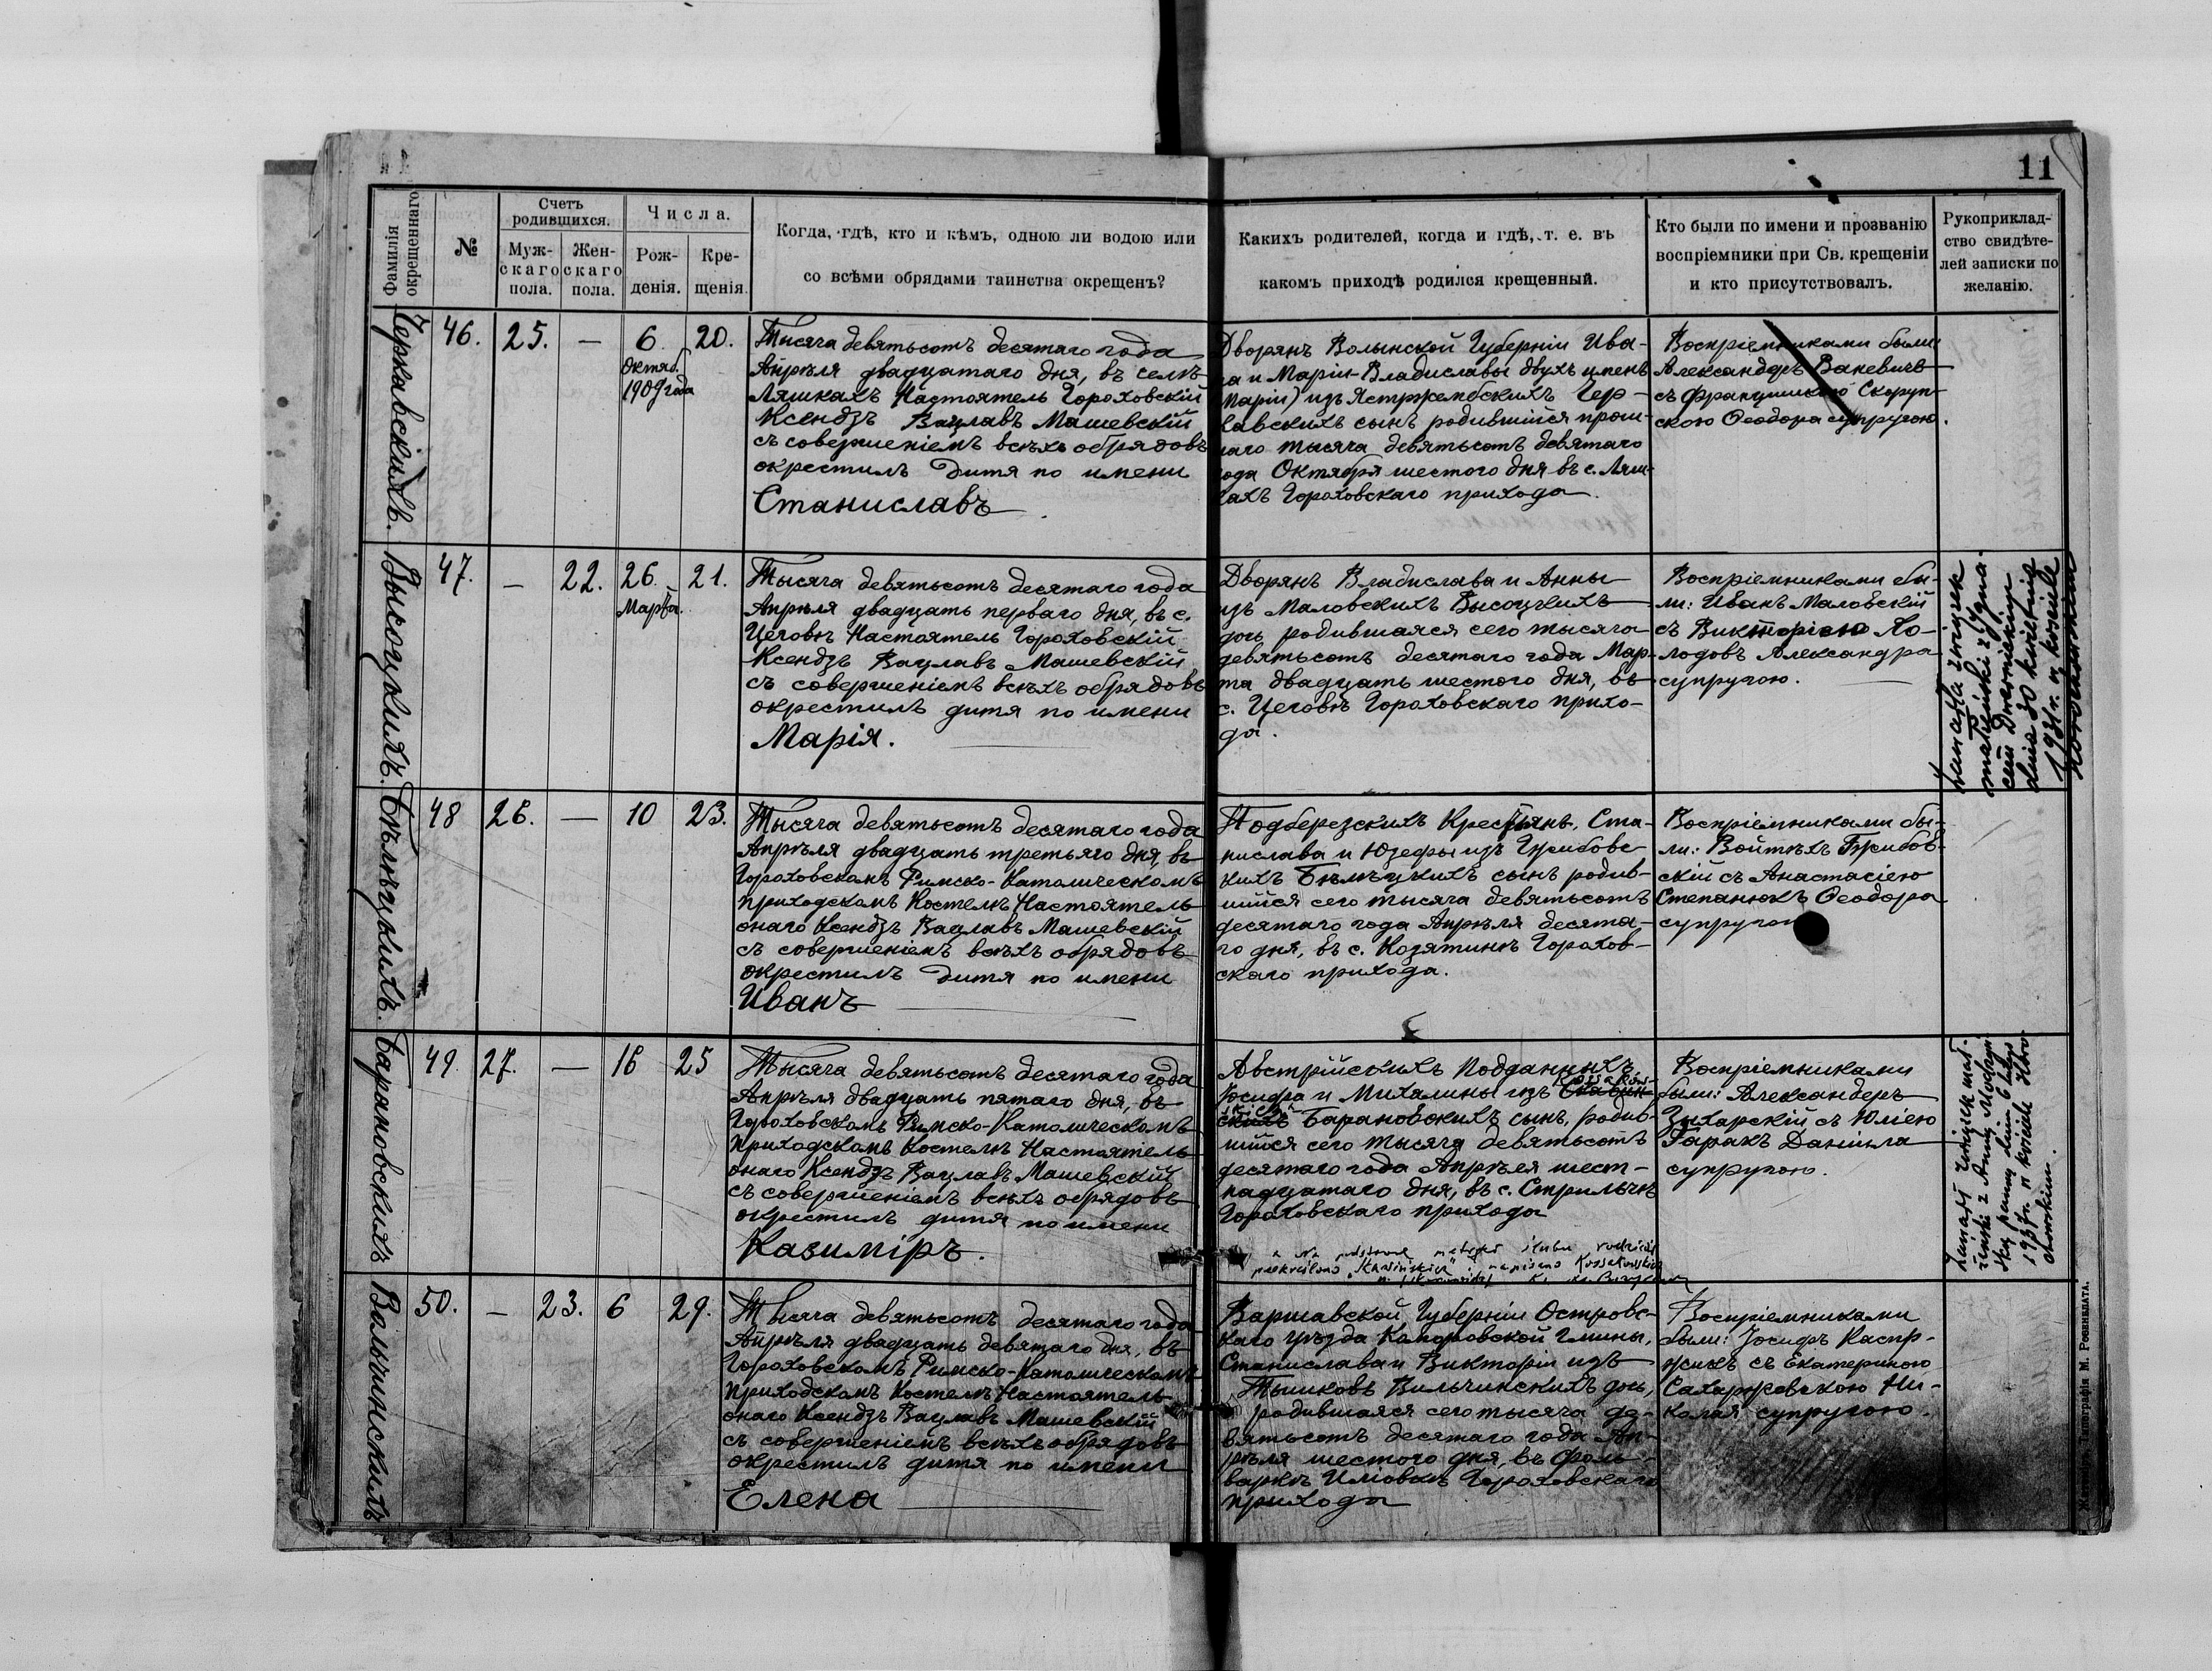 11
Фамилія окрещеннаго
№
Счетъ родившихся.
Муж-
скаго
пола.
Жен-
скаго
пола.
Числа.
Рож-
денія.
Кре-
щенія.
Когда, гдѣ, кто и кѣмъ, одною ли водою или
со всѣми обрядами таинства окрещенъ?
Какихъ родителей, когда и гдѣ, т. е. въ
какомъ приходѣ родился крещенный.
Кто были по имени и прозванію
воспріемники при Св. крещеніи
и кто присутствовалъ.
Рукоприклад-
ство свидѣте-
лей записки по
желанію.
Черкавскихъ.
46.
25.
—
6
Октяб.
1909 года
20.
Тысяча девятьсотъ десятаго года
Апрѣля двадцатаго дня, въ селѣ
Ляшкахъ Настоятель Гороховскій
Ксендзъ Вацлавъ Машевскій
съ совершеніемъ всѣхъ обрядовъ
окрестилъ дитя по имени
Станиславъ
Дворянъ Волынской Губерніи Ива-
на и Маріи-Владиславы двухъ именъ
Маріи) изъ Ястржембскихъ Чер-
кавскихъ сынъ родившійся прош-
лаго тысяча девятьсотъ девятаго
года Октября шестого дня въ с. Ляш-
кахъ Гороховскаго прихода.
Воспріемниками были
Александръ Вакевичъ
съ Скоруп-
скою Ѳеодора супругою.
Высоцкихъ.
47.
—
22.
26.
Марта.
21.
Тысяча девятьсотъ десятаго года
Апрѣля двадцать перваго дня, въ с.
Цеговѣ Настоятель Гороховскій
Ксендзъ Вацлавъ Машевскій
съ совершеніемъ всѣхъ обрядовъ
окрестилъ дитя по имени
Марія.
Дворянъ Владислава и Анны
изъ Маловскихъ Высоцкихъ
дочь родившаяся сего тысяча
девятьсотъ десятаго года Мар-
та двадцать шестого дня, въ
с. Цеговѣ Гороховскаго прихо-
да.
Воспріемниками бы-
ли: Иванъ Маловскій
съ Викторіею Хо-
лодовъ Александра
супругою.
Zawarła związek
małżeński z Igna-
cym
dnia 30 kwietnia
1931 r. w kościele
Бѣлѣцкихъ.
48
26.
—
10
23.
Тысяча девятьсотъ десятаго года
Апрѣля двадцать третьяго дня, въ
Гороховскомъ Римско-Католическомъ
приходскомъ Костелѣ Настоятель
онаго Ксендзъ Вацлавъ Машевскій
съ совершеніемъ всѣхъ обрядовъ
окрестилъ дитя по имени
Иванъ
Подберезскихъ Крестьянъ, Ста-
нислава и Юзефы изъ Гржибовс-
кихъ Бѣлѣцкихъ сынъ родив-
шійся сего тысяча девятьсотъ
десятаго года Апрѣля десята-
го дня, въ с. Козятинѣ Горохов-
скаго прихода.
Воспріемниками бы-
ли: Войтѣхъ Гржибов-
скій съ Анастасіею
Степанюкъ Ѳеодора
супругою
Барановскихъ
49.
27.
—
16
25
Тысяча девятьсотъ десятаго года
Апрѣля двадцать пятаго дня, въ
Гороховскомъ Римско-Католическомъ
приходскомъ Костелѣ Настоятель
онаго Ксендзъ Вацлавъ Машевскій
съ совершеніемъ всѣхъ обрядовъ
окрестилъ дитя по имени
Казиміръ.
Австрійскихъ Подданныхъ
Іосифа и Михалины изъ
скихъ Барановскихъ сынъ, родив-
шійся сего тысяча девятьсотъ
десятаго года Апрѣля шест-
надцатаго дня, въ с. Стрильчѣ
Гороховскаго прихода
Na podstawie metryki ślubu rodziców
przekreślono i napisano
Воспріемниками
были: Александеръ
Цихарскій съ Юліею
Гаракъ Даніила
супругою.
Zawarł związek mał-
żeński z Anną
panną dnia 6 lutego
1937 r. w kościele Horo-
chowskim.
Вильчинскихъ
50.
—
23.
6
29.
Тысяча девятьсотъ десятаго года
Апрѣля двадцать девятаго дня, въ
Гороховскомъ Римско-Католическомъ
приходскомъ Костелѣ Настоятель
онаго Ксендзъ Вацлавъ Машевскій
съ совершеніемъ всѣхъ обрядовъ
окрестилъ дитя по имени
Елена
Варшавской Губерніи Островс-
каго уѣзда Гмины,
Станислава и Викторіи изъ
Тышковъ Вильчинскихъ дочь,
родившаяся сего тысяча де-
вятьсотъ десятаго года Ап-
рѣля шестого дня, въ Фоль-
варкѣ Гороховскаго
прихода
Воспріемниками
были: Іосифъ Каспр-
жикъ съ Екатериною
Сахаржевскою Ни-
колая супругою.
Типографія М. Розенблата.